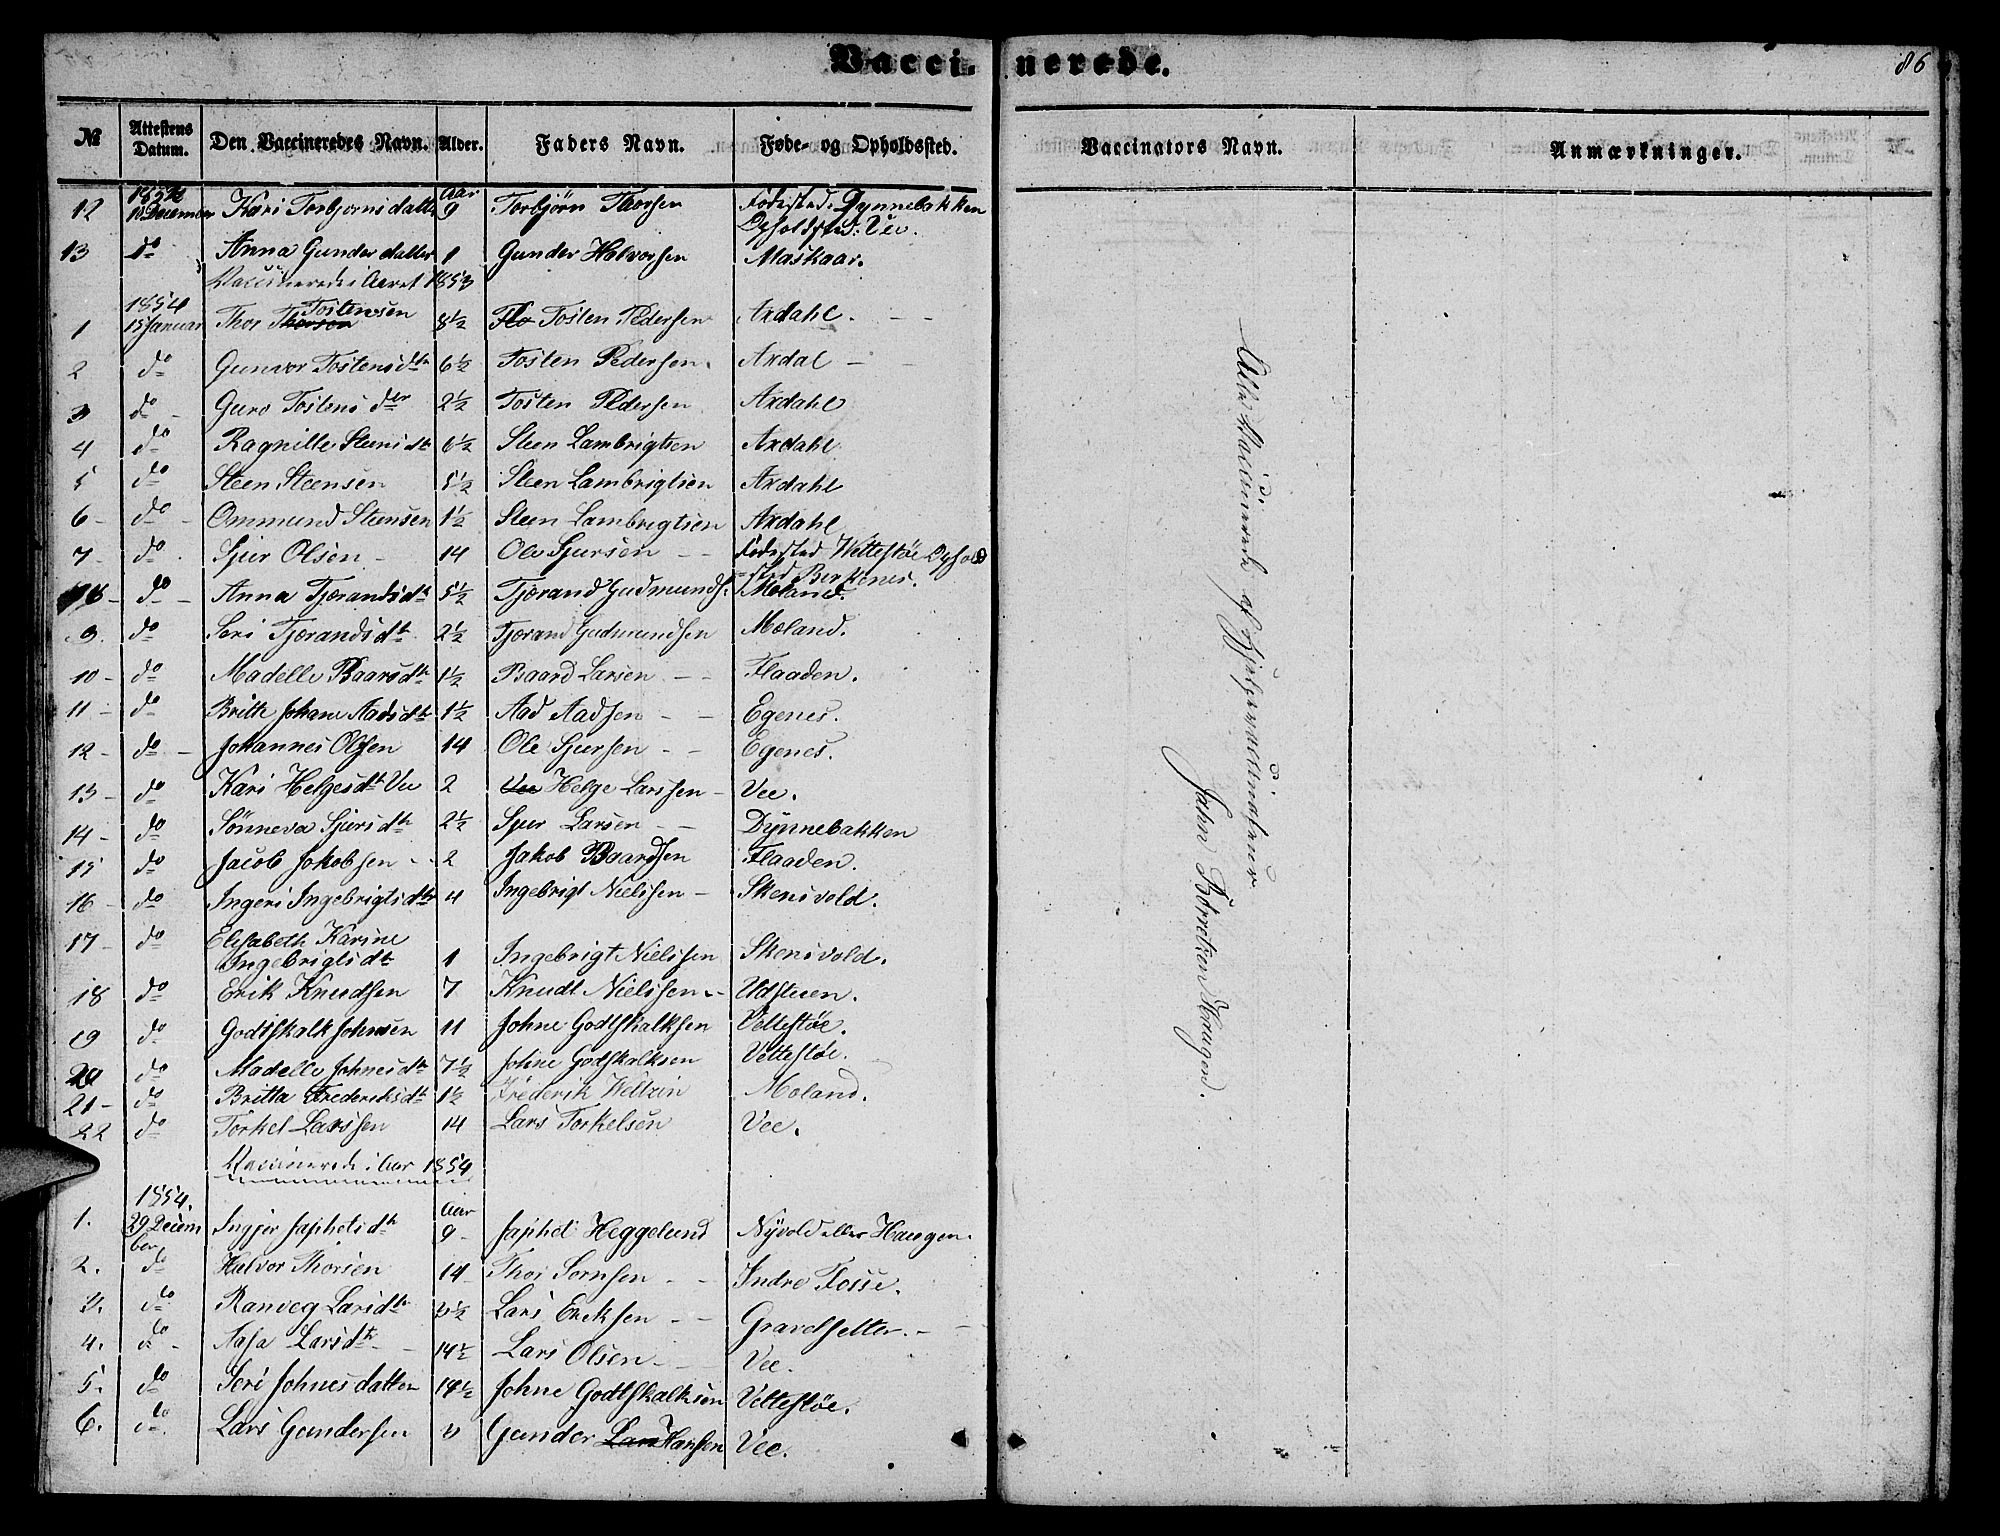 Vaccinerede.
86
№ Attestens Datum. Den Vaccineredes Navn. Alder. Faders Navn. Føde- og Opholdssted. Vaccinators Navn. Anmærkninger.
12 18 December Kari Torbjørnsdatter Aar 9 Torbjørn Thorsen Fødested: Dynnebakken
Opholdssted: Vee.
13 do Anna Gunderdatter 1 Gunder Halvorsen Maskaar.
Vaccinerede i Aaret 1853
1854
1 15 Januar Thor Thorsen Tostensen 8½ Tosten Pedersen Axdahl.
2 do Gunvor Tostensdtr 6½ Tosten Pedersen Axdal
3 do Guro Tostensdtr 2½ Tosten Pedersen Axdahl
4 do Ragnille Steensdtr 6½ Steen Lambrigtsen Axdahl
5 do Steen Steensen 5½ Steen Lambrigtsen Axdahl
6 do Ommund Steensen 1½ Steen Lambrigtsen Axdahl
7 do Sjur Olsen 14 Ole Sjursen Fødested Vettestøe Ophold
sted Birkenes.
8 do Anna Tjerandsdtr 5½ Tjerand Gudmunds. Moland.
9. do Seri Tjerandsdtr 2½ Tjerand Gudmundsen Moland.
10 do Madelle Baarsdtr 1½ Baard Larsen Flaaden.
11 do Brithe Johane Aadsdtr 1½ Aad Aadsen Egenes.
12 do Johannes Olsen 14 Ole Sjursen Egenes.
13 do Kari Helgesdtr Vee 2 Vee Helge Larssen Vee.
14 do Sønneva Sjursdtr 2½ Sjur Larsen Dynnebakken
15 do Jacob Jakobsen 2 Jakob Baardsen Flaaden.
16 do Ingeri Ingebrigtsdtr 4 Ingebrigt Nielssen Skensvold.
17 do Elisabeth Karine
Ingebrigtsdtr 1 Ingebrigt Nielssen Skensvold.
18 do Erik Knudsen 7 Knudt Nielssen Udstuen.
19 do Godtskalk Johnsen 11 Johne Godtskalksen Vettestøe.
20 do Madelle Johnesdtr 7½ Johne Godtskalksen Vettestøe.
21 do Britta Frederiksdtr 1½ Frederik Weltzin Moland.
22 do Torkel Larssen 14 Lars Torkelsen Vee.
Vaccinerede i Aar 1854
1854.
1. 29 December Ingjer Japhetsdtr Aar 9 Japhet Heggelund Nyvold eller Haugen.
2. do Halvor Thorsen 14 Thor Sornsen Indre Fosse.
3. do Ranveg Larsdtr Lars Eriksen Gravdseter.
4. do Aasa Larsdtr 14½ Lars Olsen Vee.
5. do Seri Johnesdatter 14½ Johne Godtskalksen Vettestøe.
6. do Lars Gundersen Gunder Lars Hansen Vee.
Alle Vaccinerede af Hjelpevaccinateur
Jahn Børretsen Haugen.